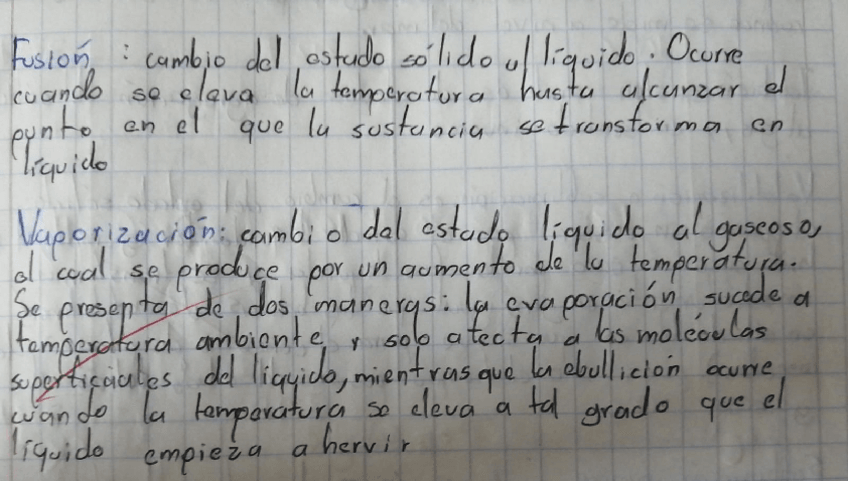 Fusión : cambio del estado sólido al líquido. Ocurre
cuando se eleva la temperatura hasta alcanzar el
punto en el que la sustancia se transforma en
líquido
Vaporización: cambio del estado líquido al gaseoso,
el cual se produce por un aumento de la temperatura.
Se presenta de dos maneras: la evaporación sucede a
temperatura ambiente y solo afecta a las moléculas
superficiales del líquido, mientras que la ebullición ocurre
cuando la temperatura se eleva a tal grado que el
líquido empieza a hervir